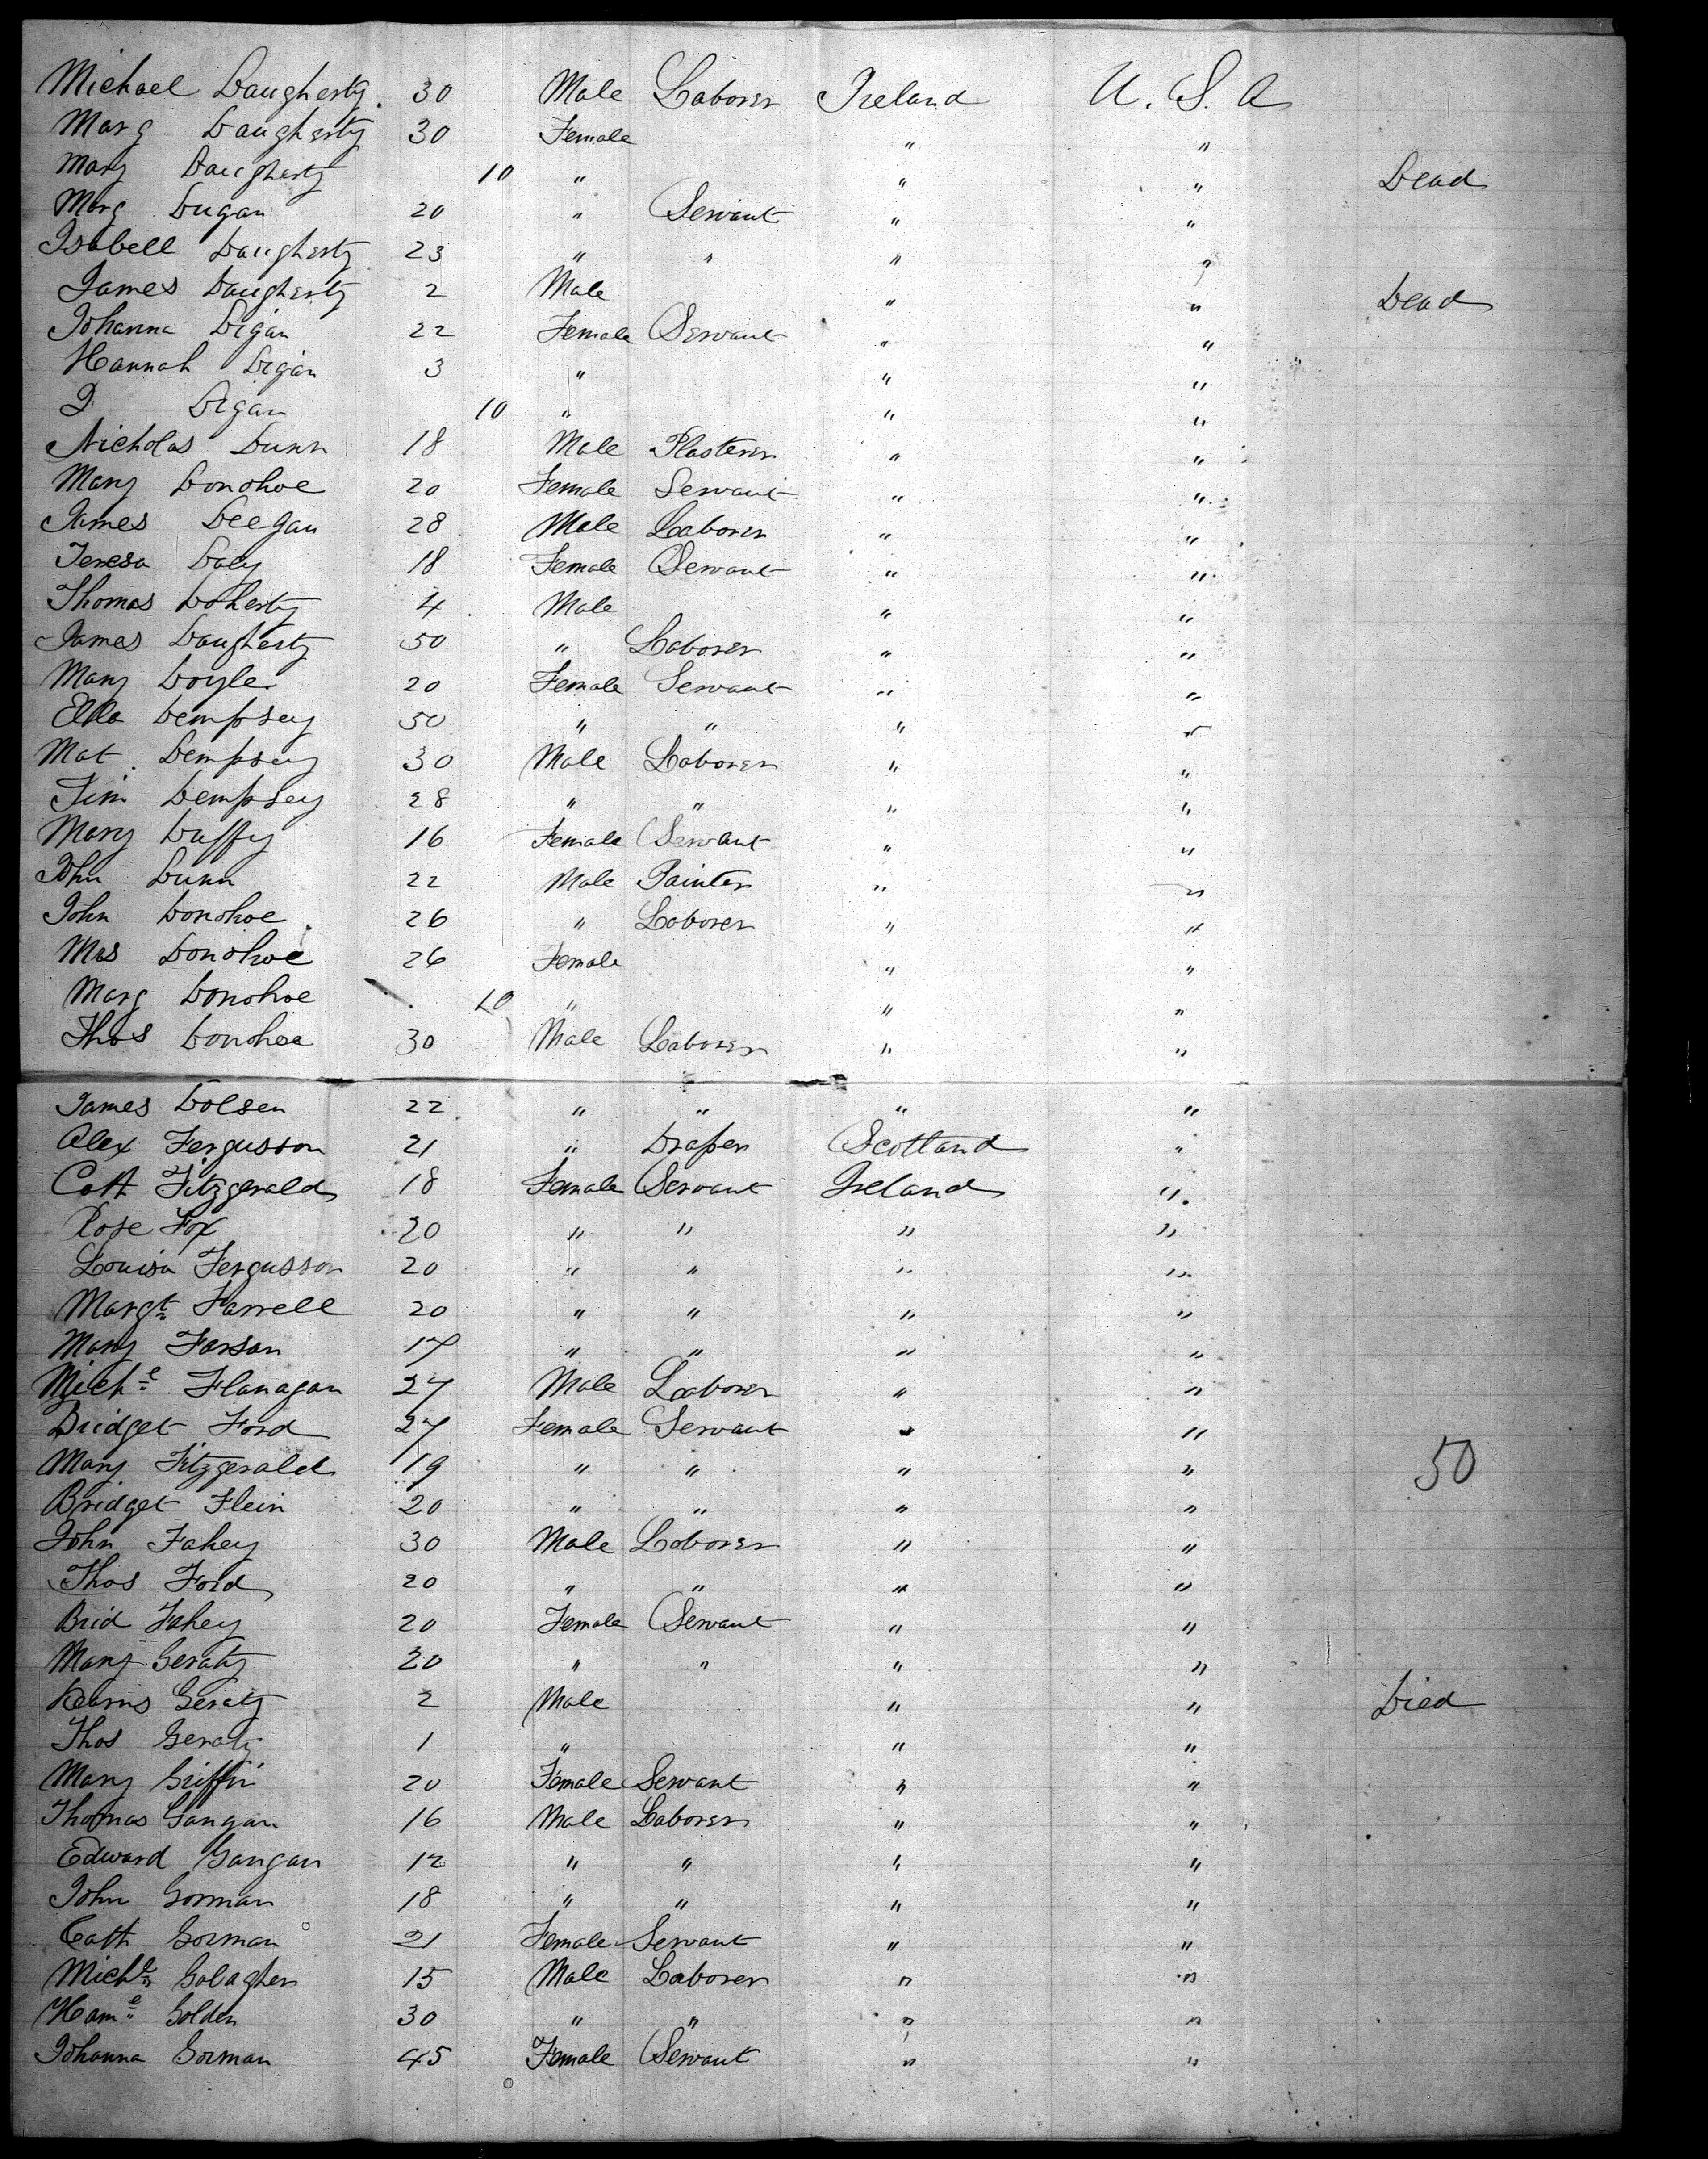 Michael Daugherty. 30 Male Laborer Ireland U. S. A
Marg Daugherty 30 Female " "
Mary Daugherty 10 " " " Dead
Marg Dugan 20 " Servant " "
Isabell Daugherty 23 " " " "
James Daugherty 2 Male " " Dead
Johanna Digan 22 Female Servant " "
Hannah Digan 3 " " "
J Digan 10 " " "
Nicholas Dunn 18 Male Plasterer " "
Mary Donohoe 20 Female Servant " "
James Deegan 28 Male Laborer " "
Teresa Daly 18 Female Servant " "
Thomas Doherty 4 Male " "
James Daugherty 50 " Laborer " "
Mary Doyle 20 Female Servant " "
Ella Dempsey 50 " " " "
Mat. Dempsey 30 Male Laborer " "
Jim Dempsey 28 " " " "
Mary Duffy 16 Female Servant " "
John Dunn 22 Male Painter " "
John Donohoe 26 " Laborer " "
Mrs Donohoe 26 Female " "
Marg Donohoe 10 " " "
Thos Donohoe 30 Male Laborer " "
James Dolsen 22 " " " "
Alex Fergusson 21 " Draper Scotland "
Cath Fitzgerald 18 Female Servant Ireland "
Rose Fox 20 " " " "
Louisa Fergusson 20 " " " "
Margt Farrell 20 " " " "
Mary Farson 17 " " " "
Michl Flanagan 27 Male Laborer " "
Bridget Ford 27 Female Servant " "
Mary Fitzgerald 19 " " " " 50
Bridget Flein 20 " " " "
John Fahey 30 Male Laborer " "
Thos Ford 20 " " " "
Brid Fahey 20 Female Servant " "
Mary Geraty 20 " " " "
Kearns Geraty 2 Male " " Died
Thos Geraty 1 " " "
Mary Griffin 20 Female Servant " "
Thomas Gangan 16 Male Laborer " "
Edward Gangan 12 " " " "
John Gorman 18 " " " "
Cath Gorman 21 Female Servant " "
Michl Golagher 15 Male Laborer " "
Golden 30 " " " "
Johanna Gorman 45 Female Servant " "